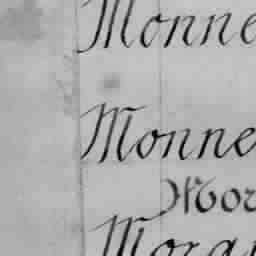 Monne
Monne
Mor
Morar